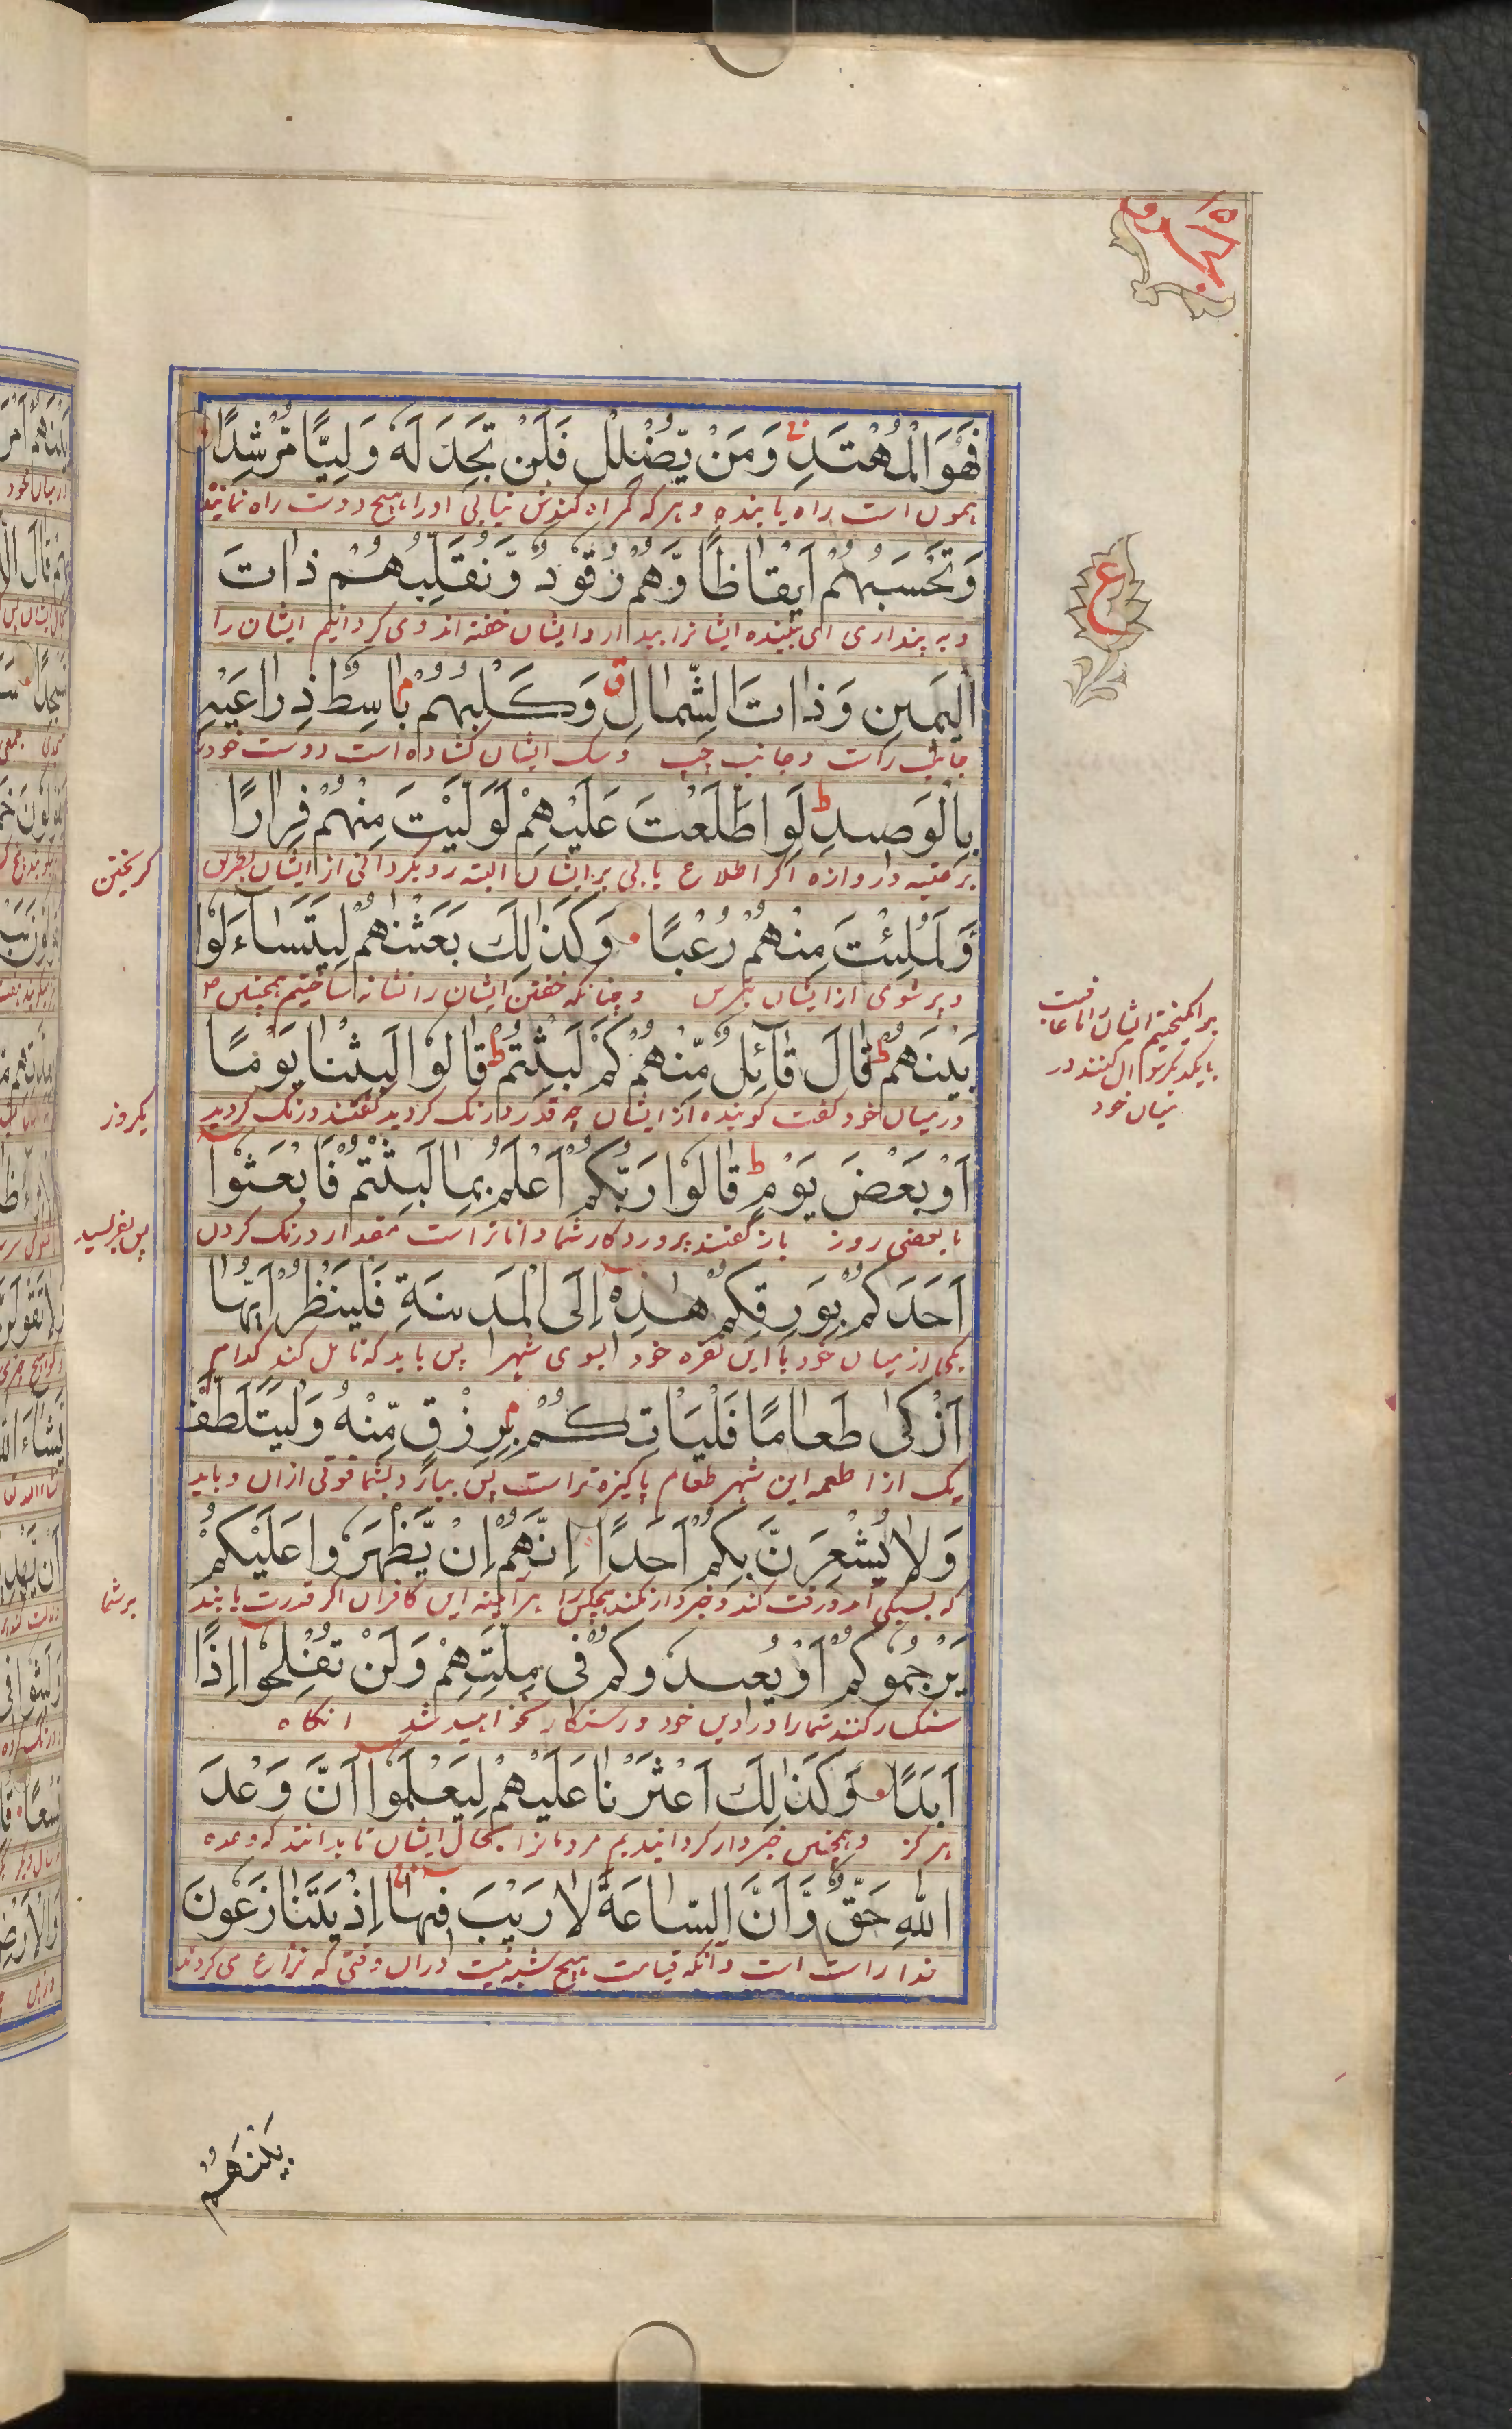 فَهُوَ الْمُهْتَدِ وَمَنْ يُّضْلِلْ فَلَنْ تَجِدَ لَهُ وَلِيًّا مُّرْشِدًا
همون است راه یابنده و هر که گمراه کندش نیابی او را هیچ دوست راه نماینده
وَتَحْسَبُهُمْ اَيْقَاظًا وَّهُمْ رُقُودٌ وَّنُقَلِّبُهُمْ ذَاتَ
و به پنداری ای بیننده ایشانرا بیدار و ایشان خفته اند و می گردانیم ایشان را
الْيَمِينِ وَذَاتَ الشِّمَالِ وَكَلْبُهُمْ بَاسِطٌ ذِرَاعَيْهِ
جانب راست و جانب چپ و سگ ایشان کشاده است دو دست خود
بِالْوَصِيدِ لَوِ اطَّلَعْتَ عَلَيْهِمْ لَوَلَّيْتَ مِنْهُمْ فِرَارًا
بر عتبه دروازه اگر اطلاع یابی بر ایشان البته رو بگردانی از ایشان بطریق
گریختن
وَّلَمُلِئْتَ مِنْهُمْ رُعْبًا وَكَذٰلِكَ بَعَثْنٰهُمْ لِيَتَسَآءَلُوْا
و پر شوی از ایشان بترس و چنانکه خفتن ایشان را نشانه ساختیم همچنین
بر انگیختیم ایشان را تا عاقبت
با یکدیگر سوال کنند در
میان خود
بَيْنَهُمْ قَالَ قَآئِلٌ مِّنْهُمْ كَمْ لَبِثْتُمْ قَالُوْا لَبِثْنَا يَوْمًا
در میان خود گفت گوینده از ایشان چه قدر درنگ کردید گفتند درنگ کردید
یکروز
اَوْ بَعْضَ يَوْمٍ قَالُوْا رَبُّكُمْ اَعْلَمُ بِمَا لَبِثْتُمْ فَابْعَثُوْا
یا بعضی روز باز گفتند پروردکار شما داناتر است بمقدار درنگ کردن
پس بفرسید
اَحَدَكُمْ بِوَرِقِكُمْ هٰذِهٖ اِلَى الْمَدِينَةِ فَلْيَنْظُرْ اَيُّهَا
یکی از میان خود با این نقره خود بسوی شهر پس باید که تامل کند کدام
اَزْكٰى طَعَامًا فَلْيَاْتِكُمْ بِرِزْقٍ مِّنْهُ وَلْيَتَلَطَّفْ
یک از اطعمه این شهر طعام پاکیزه تر است پس بیارد بشما قوتی ازان و باید
وَلَا يُشْعِرَنَّ بِكُمْ اَحَدًا اِنَّهُمْ اِنْ يَّظْهَرُوا عَلَيْكُمْ
که بسبکی آمد و رفت کند و خبردار نکند هیچکس را هر آینه این کافران اگر قدرت یابند
بر شما
يَرْجُمُوكُمْ اَوْ يُعِيدُوكُمْ فِي مِلَّتِهِمْ وَلَنْ تُفْلِحُوْا اِذًا
سنگسار کنند شما را در دین خود و رستکار نخواهید شد انگاه
اَبَدًا وَكَذٰلِكَ اَعْثَرْنَا عَلَيْهِمْ لِيَعْلَمُوْا اَنَّ وَعْدَ
هرگز و همچنین خبردار کردانیدیم مردمانرا بحال ایشان تا بدانند که وعده
اللهِ حَقٌّ وَّاَنَّ السَّاعَةَ لَا رَيْبَ فِيهَا اِذْ يَتَنَازَعُونَ
خدا راست است و آنکه قیامت هیچ شبه نیست دران وقتی که نزاع می کردند
بَيْنَهُمْ
ع